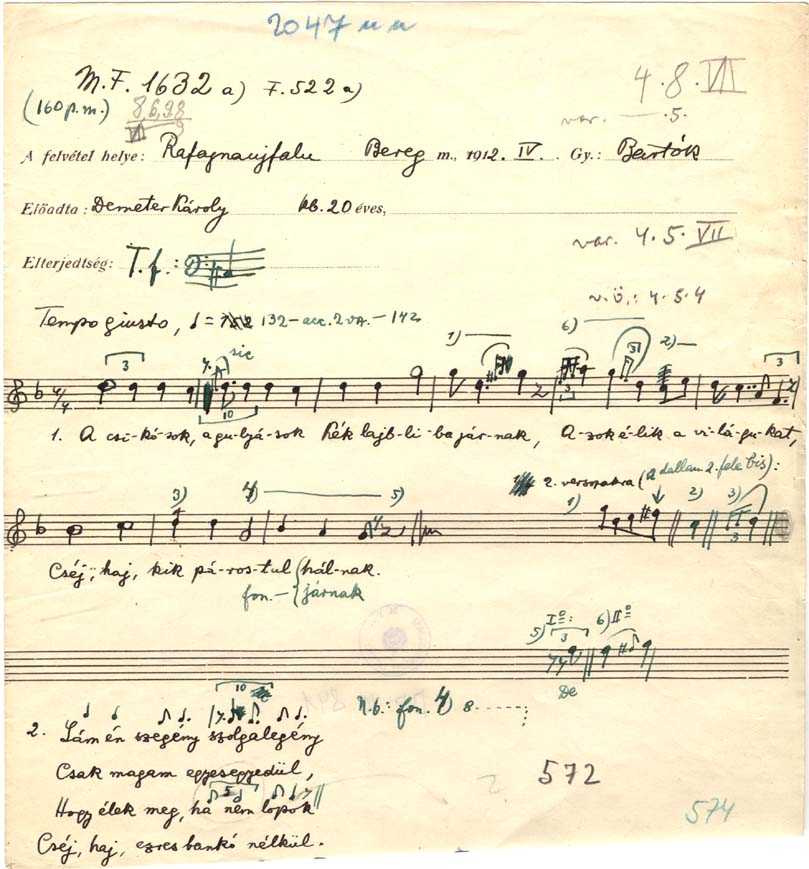 2047
M.F. 1632 a) F. 522 a)
4.8.VII
(160 p.m.)
var. 5.
A felvétel helye: Rafajnaujfalu Bereg m., 1912. IV. Gy.: Bartók
Előadta: Demeter Károly kb. 20 éves,
var. 4.5.VII
Elterjedtség: T.f.:
v.ö.: 4.5.4
Tempo giusto, = 132 - acc. 2 va. - 142
1) 6) 2)
3 sic 3 3
10 3
1. A csi-kó-sok, a gu-lyá-sok Kék lajb-li-ba jár-nak, A-zok é-lik a vi-lá-gu-kat,
2. versszakra (a dallam 2. fele bis):
3) 4) 5) 1) 2) 3)
3
Cséj, haj, kik pá-ros-tul hál-nak.
fon. - járnak
I º: 6) II º
5) 3
De
10
N.b.: fon. 4) 8
2. Lám én szegény szolgalegény
Csak magam egyesegyedül,
572
5
Hogy élek meg, ha nem lopok
574
Cséj, haj, ezres bankó nélkül.